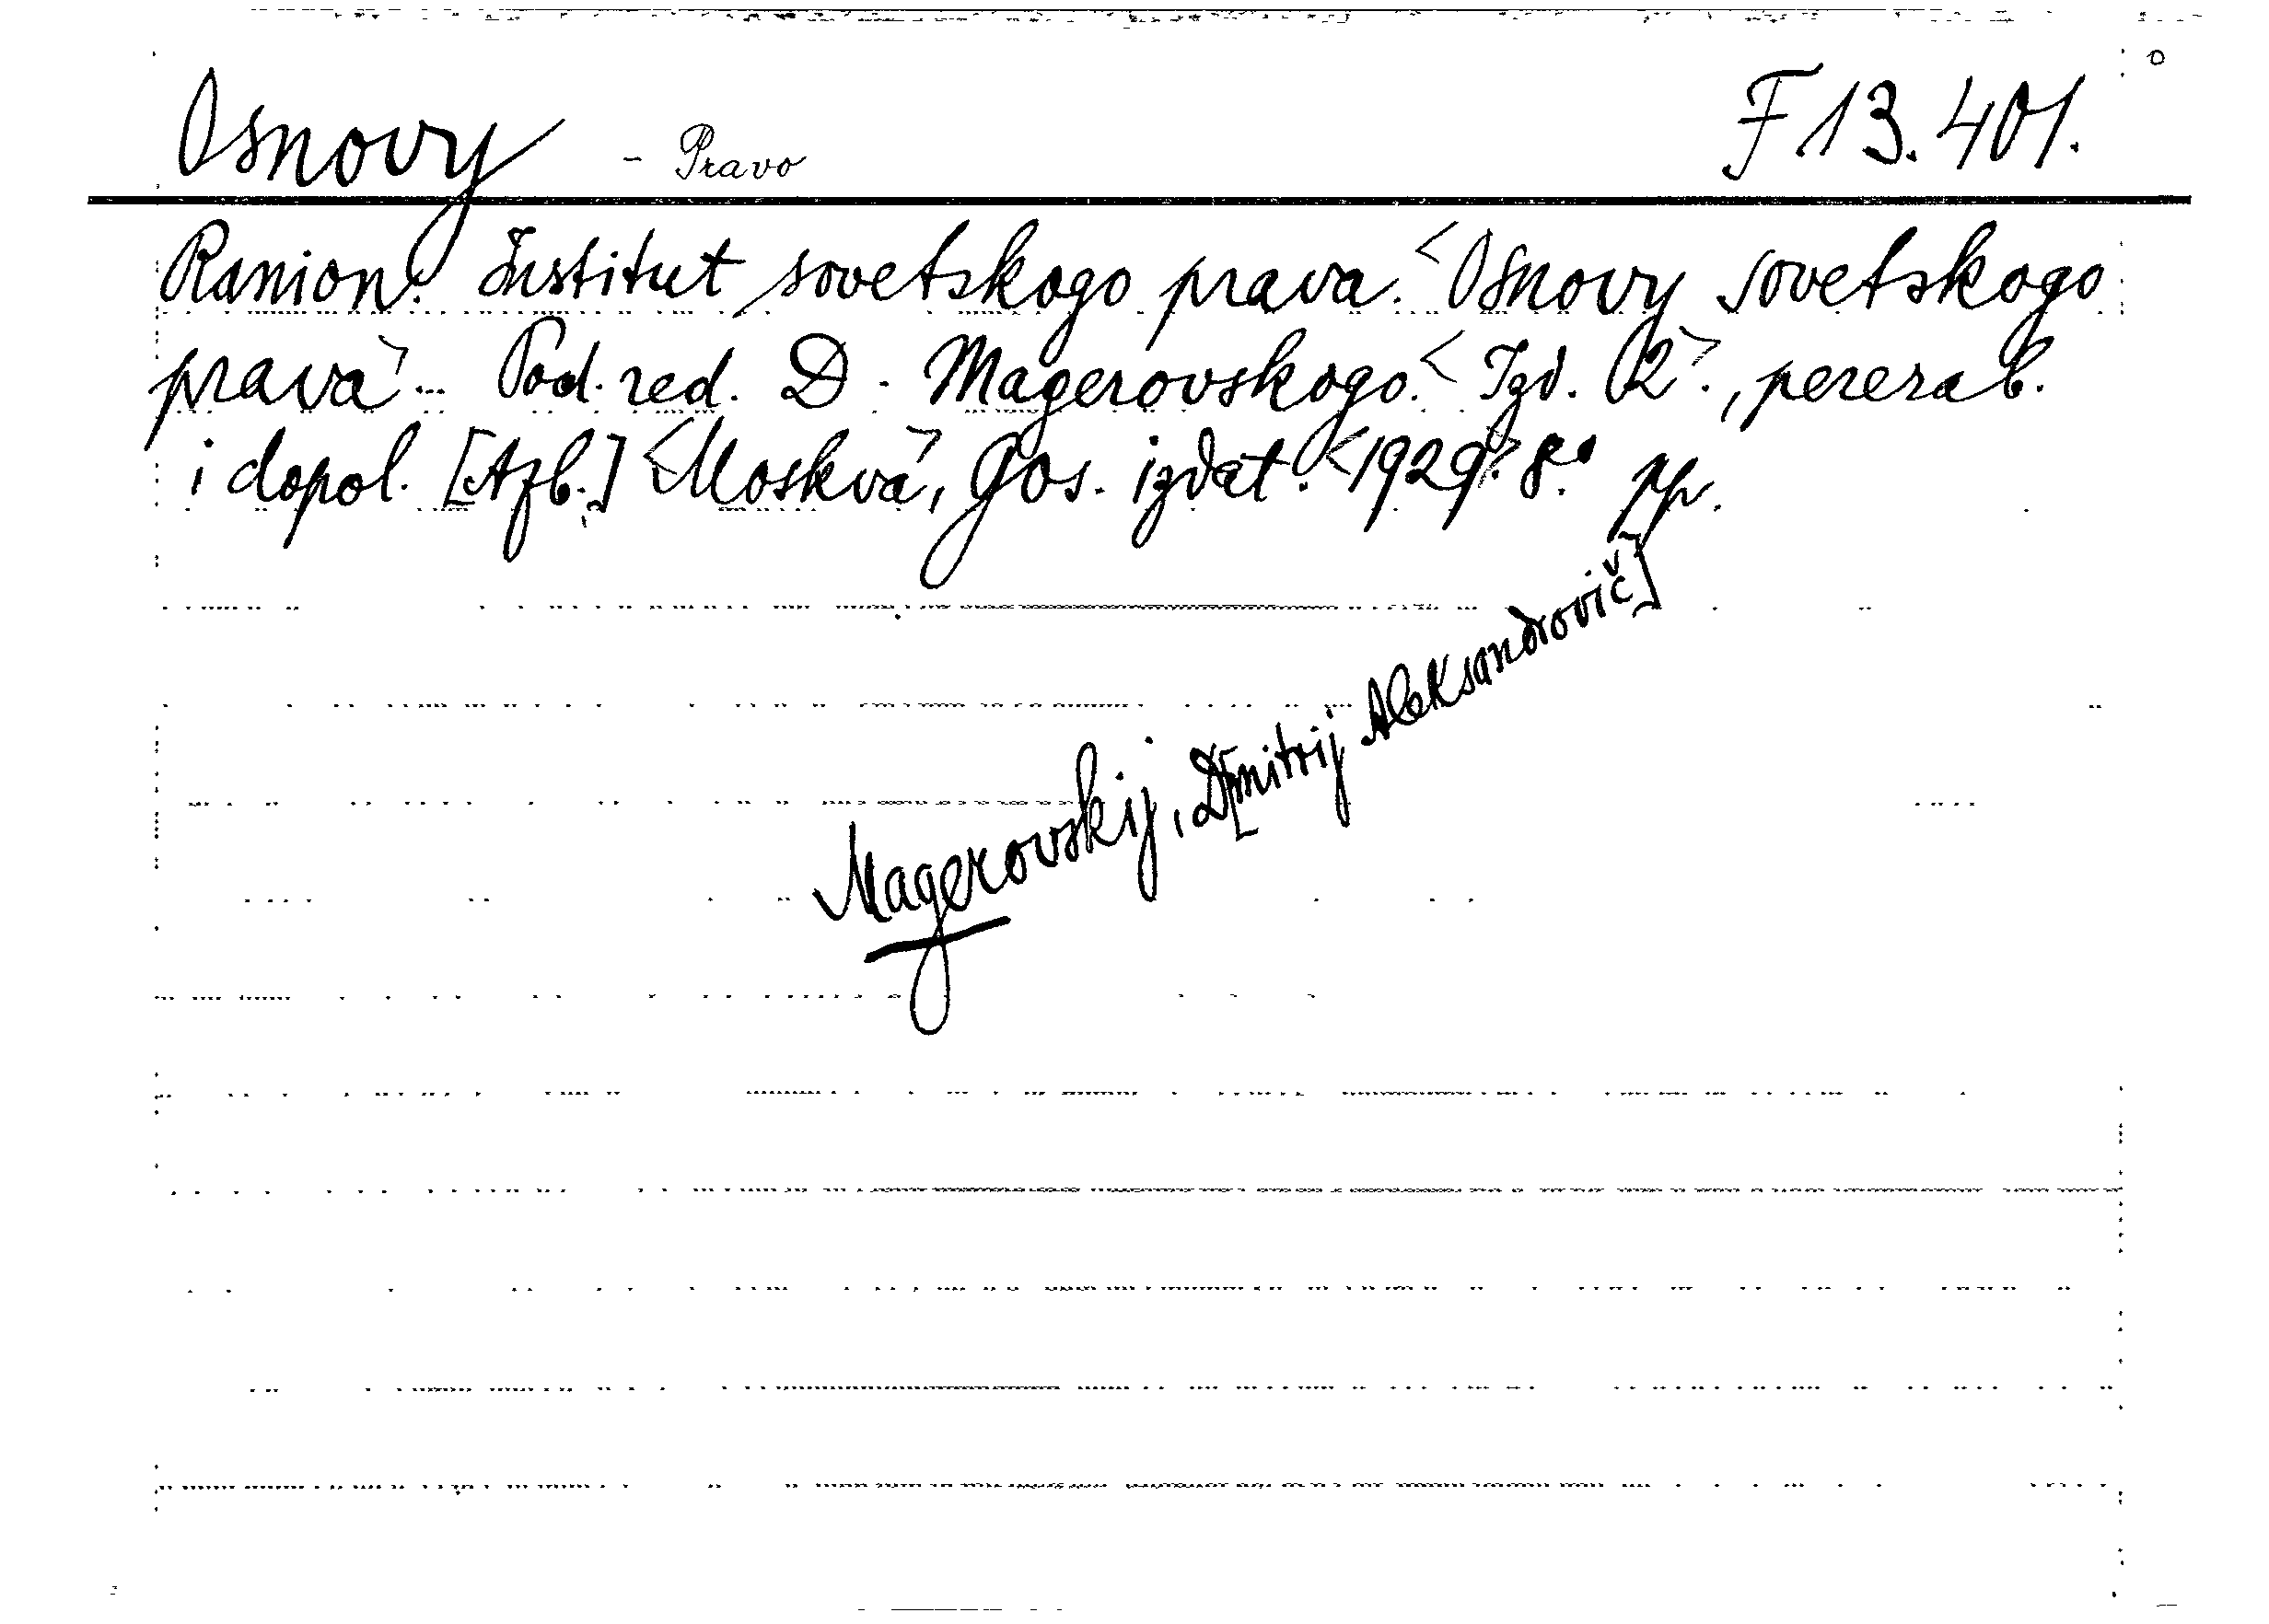 Osnovy - Pravo F 13.401.
Ranion. Institut sovetskogo prava. <Osnovy sovetskogo
prava> ... Pod. red. D. Magerovskogo. <Izd. 2>., pererab.
i dopol. [Azb.] <Moskva>, Gos. izdat. <1929>. 8°
Magerovskij, D[mitrij Aleksandrovič]